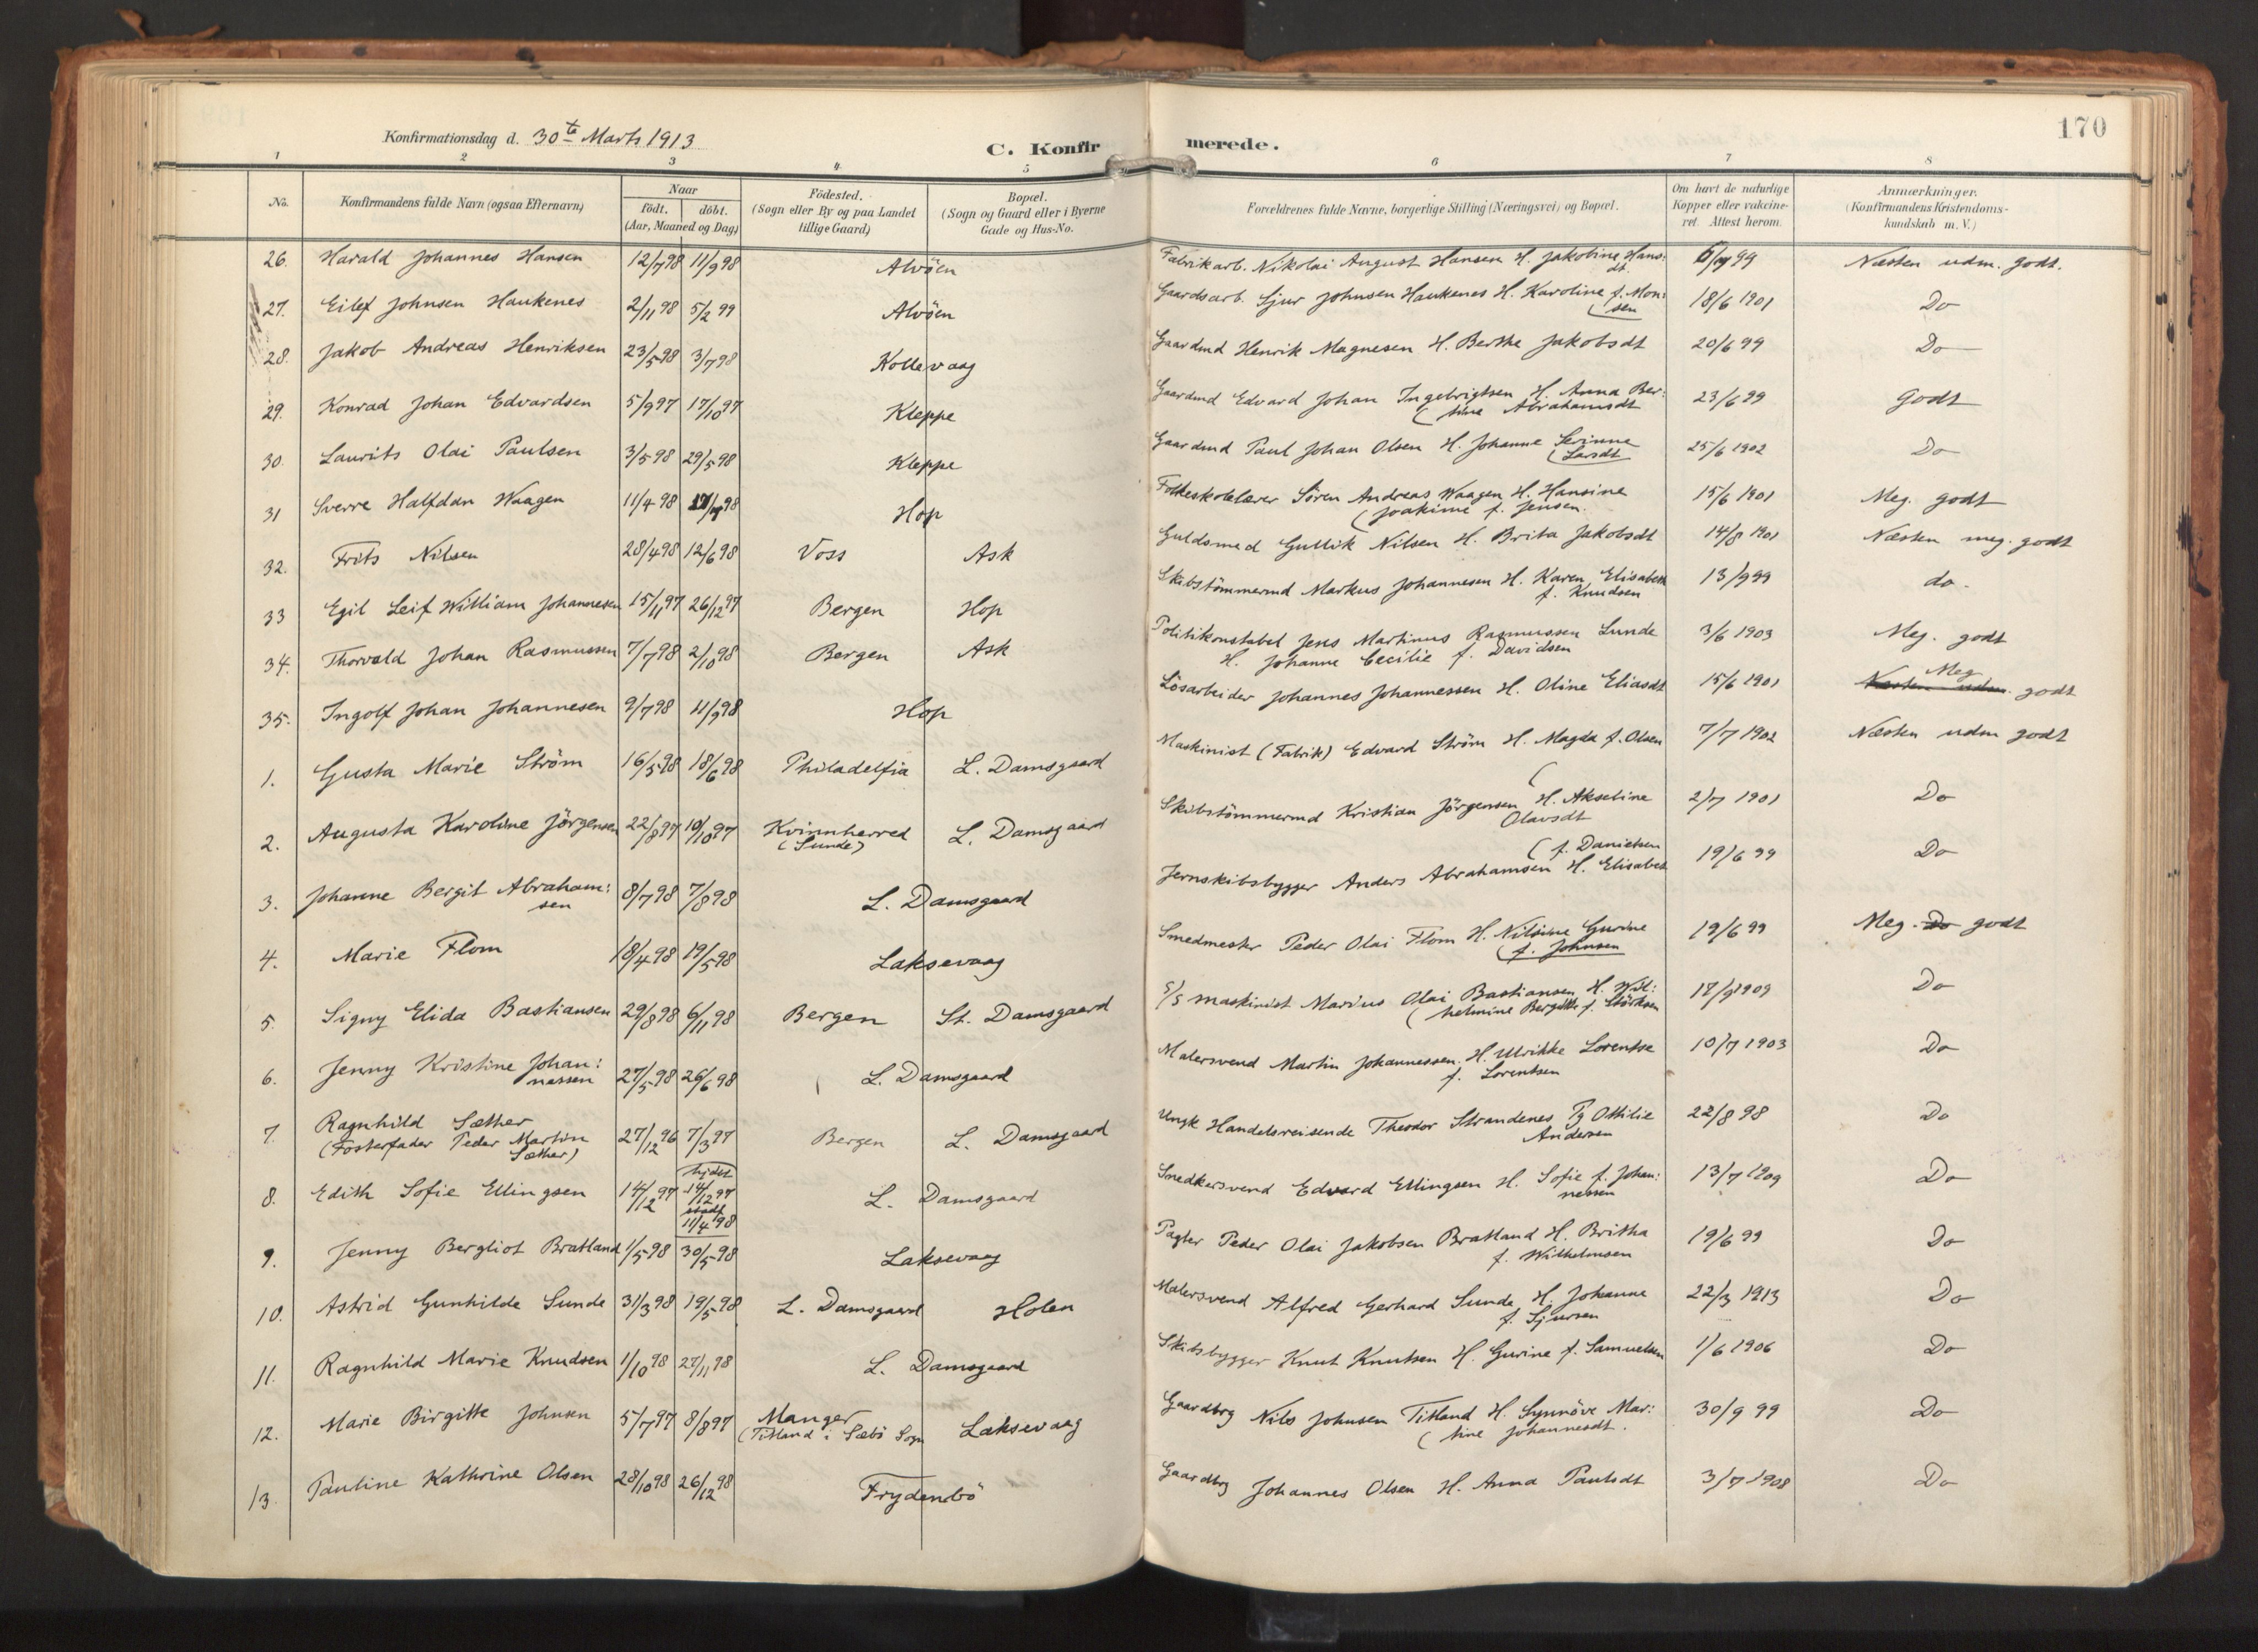 170
Konfirmationsdag d. 30te Marts 1913
C. Konfirmerede.
1 2 3 4 5 6 7 8
No. | Konfirmandens fulde Navn (ogsaa Efternavn) | Naar födt. döbt. (Aar, Maaned og Dag) | Födested. (Sogn eller By og paa Landet tillige Gaard) | Bopæl. (Sogn og Gaard eller i Byerne Gade og Hus-No. | Forældrenes fulde Navne, borgerlige Stilling (Næringsvei) og Bopæl. | Om havt de naturlige Kopper eller vakcineret. Attest herom. | Anmærkninger. (Konfirmandens Kristendomskundskab m. V.)
26. Harald Johannes Hansen 12/7 98 11/9 98 Alvöen Fabrikarb. Nikolai August Hansen H. Jakobine Hans:dt 99 Næsten udm. godt.
27. Eilef Johnsen Haukenes 2/11 98 5/2 99 Alvöen Gaardsarb. Sjur Johnsen Haukenes H. Karoline f. Mon:sen 18/6 1901 Do
28. Jakob Andreas Henriksen 23/5 98 3/7 98 Kollevaag Gaardmd Henrik Magnesen H. Berthe Jakobsdt 20/6 99 Do
29. Konrad Johan Edvardsen 5/9 97 17/10 97 Kleppe Gaardmd Edvard Johan Ingebrigtsen H. Anna Ber:(tine Abrahamsdt 23/6 99 Godt
30. Laurits Olai Paulsen 3/5 98 29/5 98 Kleppe Gaardmd Paul Johan Olsen H. Johanne Serinne (Larsdt 25/6 1902 Do
31 Sverre Halfdan Waagen 11/4 98 98 Hop Folkeskolelærer Sören Andreas Waagen H. Hansine (Joakime f. Jensen. 15/6 1901 Meg. godt
32. Frits Nilsen 28/4 98 12/6 98 Voss Ask Guldsmed Gullik Nilsen H. Brita Jakobsdt 14/8 1901 Næsten meg. godt
33 Egil Leif William Johannesen 15/11 97 26/12 97 Bergen Hop Skibstömmermd Markus Johannesen H. Karen Elisabeth f. Knudsen 13/9 99 do.
34. Thorvald Johan Rasmussen 7/7 98 2/10 98 Bergen Ask Politikonstabel Jens Martinus Rasmussen Lunde H. Johanne Cecilie f. Davidsen 3/6 1903 Meg. godt
35. Ingolf Johan Johannesen 9/7 98 11/9 98 Hop Lösarbeider Johannes Johannessen H. Oline Eliasdt 15/6 1901 Næsten udm. Meg godt
1. Gusta Marie Ström 16/5 98 18/6 98 Philadelfia L. Damsgaard Maskinist (Fabrik) Edvard Ström H. Magda f. Olsen 7/7 1902 Næsten udm godt
2. Augusta Karoline Jörgensen 22/8 97 10/10 97 Kvinnherred (Sunde) L. Damsgaard Skibstömmermd Kristian Jörgensen (H. Akseline Olavsdt 2/7 1901 Do
3. Johanne Bergit Abraham:sen 8/7 98 7/8 98 L. Damsgaard Jernskibsbygger Anders Abrahamsen H. Elisabet (f. Danielsen 19/6 99 Do
4. Marie Flom 18/4 98 19/5 98 Laksevaag Smedmester Peder Olai Flom H. Nilsine Gurine (f. Johnsen 19/6 99 Meg. Do godt
5. Signy Elida Bastiansen 29/8 98 6/11 98 Bergen St. Damsgaard S/S maskinist Marius Olai Bastiansen H. Wil:(helmine Bergitte f. 17/9 1909 Do
6. Jenny Kristine Johan:nessen 27/5 98 26/6 98 L. Damsgaard Malersvend Martin Johannessen. H. Ulrikke Lorentse f. Lorentsen 10/7 1903 Do
7. Ragnhild Sæther (Fosterfader Peder Martin Sæther) 27/12 96 7/3 97 Bergen L. Damsgaard Ungk Handelsreisende Theodor Strandenes Pg Othilie Andersen 22/8 98 Do
8. Edith Sofie Ellingsen 14/12 97 hjdöt 14/12 97 stadf 11/4 98 L. Damsgaard Snedkersvend Edvard Ellingsen H. Sofie f. Johan:nessen 13/7 1909 Do
9. Jenny Bergliot Bratland 1/5 98 30/5 98 Laksevaag Pagter Peder Olai Jakobsen Bratland H. Britha f. Wilhelmsen 19/6 99 Do
10. Astrid Gunhilde Sunde 31/3 98 19/5 98 L. Damsgaard Holen Malersvend Alfred Gerhard Sunde H. Johanne f. Sjursen 22/3 1913 Do
11. Ragnhild Marie Knudsen 1/10 98 27/11 98 L. Damsgaard Skibsbygger Knut Knutsen H. Gurine f. Samuelsen 1/6 1906 Do
12. Marie Birgitte Johnsen 5/7 97 8/8 97 Manger (Titland i Sæbö Sogn Laksevaag Gaardbrg Nils Johnsen Titland H. Synnöve Mar:(tine Johannesdt. 30/9 99 Do
13. Pauline Kathrine Olsen 28/10 98 26/12 98 Frydenbö Gaardbrg Johannes Olsen H. Anna Paulsdt 3/7 1908 Do